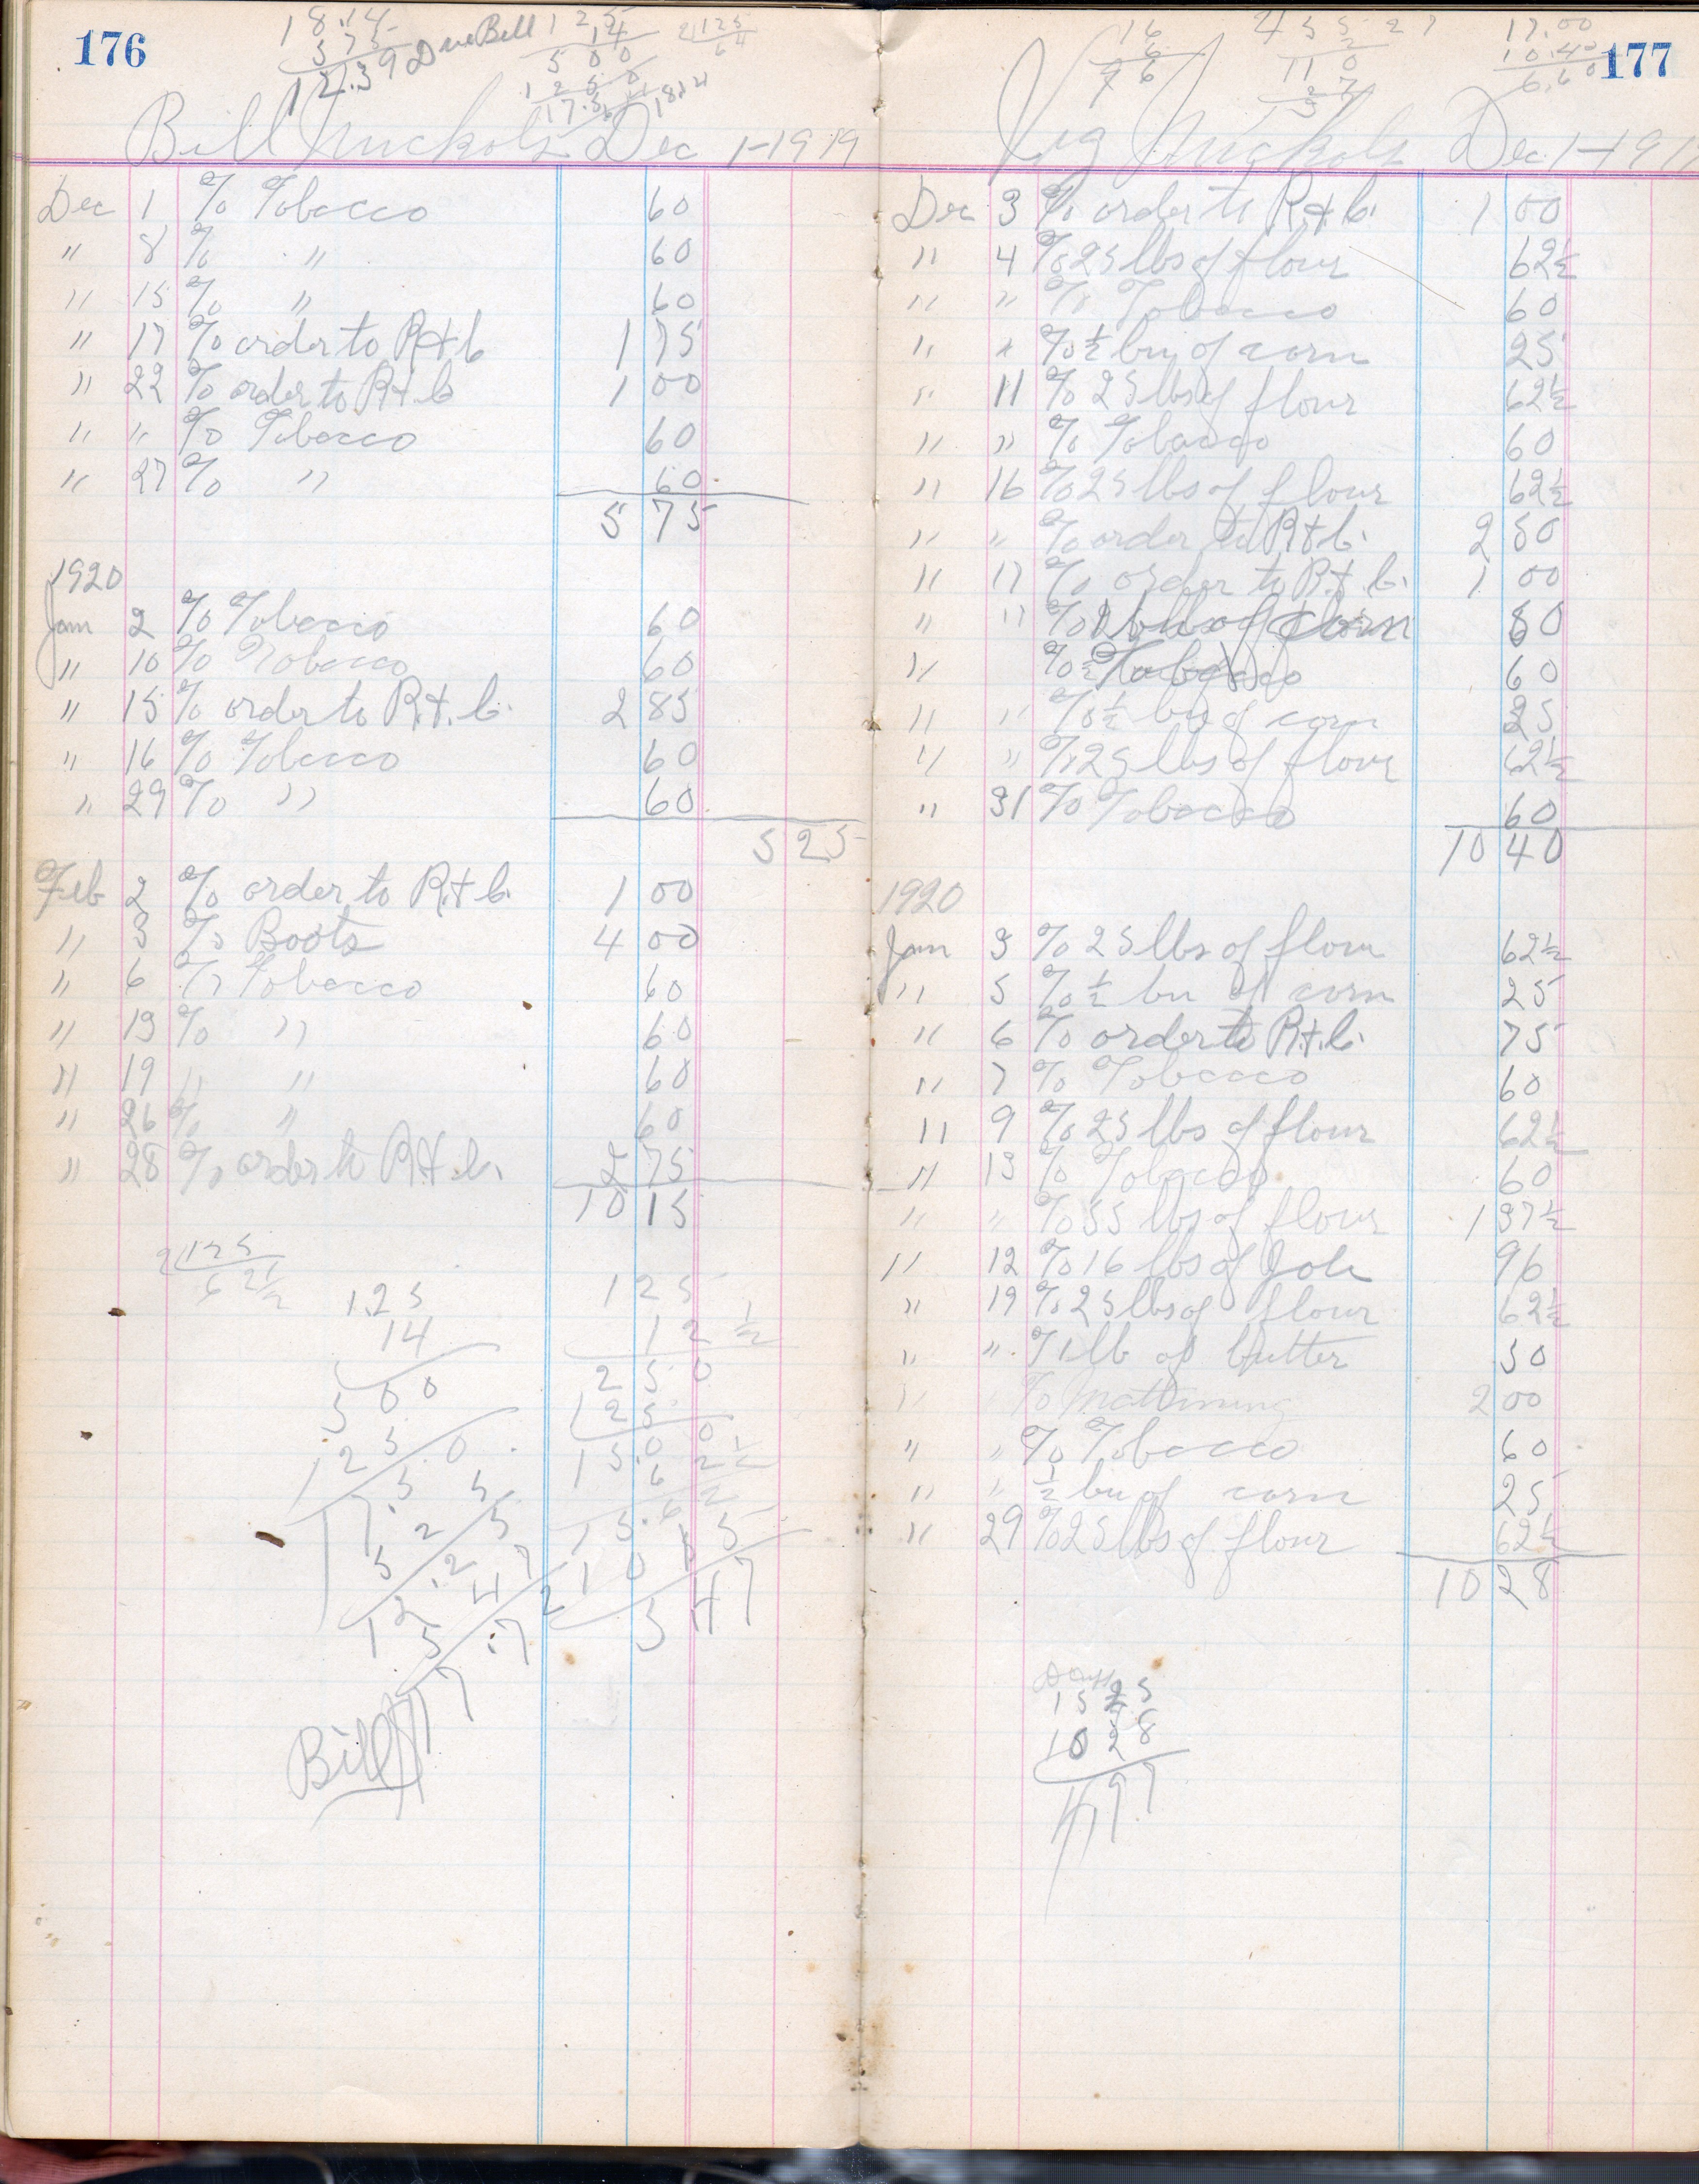 176
18.14
5 75
12.39 Due Bill
1 25
14
5 00
1 2 5 0
17.5
18 14
2 125
6 4
Bill Nuckols Dec 1-1919
Dec 1 % Tobacco 60
" 8 % " 60
" 15 % " 60
" 17 % order to R+b 1 75
" 22 % order to R+b 1 00
" " % Tobacco 60
" 27 % " 60
5 75
1920
Jan 2 % Tobacco 60
" 10 % Tobacco 60
" 15 % order to R.+.b. 2 85
" 16 % Tobacco 60
" 29 % " 60
5 25
Feb 2 % order to R.+b. 1 00
" 3 % Boots 4 00
" 6 % Tobacco 60
" 13 % " 60
" 19 " " 60
" 26 % " 60
" 28 % order to R.+.b. 2 75
10 15
2 125
6 2 1/2
1.25
14
5 0 0
1 2 5 0
17.5
5 2 5
12.2 5
5 47
17.7
Bill
1 2 5
1 2 1/2
2 5 0
1 2 5
15.0 0
6 2 1/2
15.6 2
10 1 5
5 47
177
16
6
9 6
4 5 5
2
11 0
2 7
2 7
17.00
10.40
6.60
Jig Nuckols Dec 1-191
Dec 3 % order to R.+b. 1 00
" 4 % 25 lbs of flour 62 1/2
" " % Tobacco 60
" " % 1/2 bu of corn 25
" 11 % 25 lbs of flour 62 1/2
" " % Tobacco 60
" 16 % 25 lbs of flour 62 1/2
" " % order to R+b. 2 50
" 17 % order to R.+.b. 1 00
" " % bu of corn 80
" % Tobacco 60
" " % 1/2 bu of corn 25
" " % 25 lbs of flour 62 1/2
" 31 % Tobacco 60
10 40
1920
Jan 3 % 25 lbs of flour 62 1/2
" 5 % 1/2 bu of corn 25
" 6 % order to R.+.b. 75
" 7 % Tobacco 60
" 9 % 25 lbs of flour 62 1/2
" 13 % Tobacco 60
" " % 55 lbs of flour 1 37 1/2
" 12 % 16 lbs of Jole 96
" 19 % 25 lbs of flour 62 1/2
" " % 1 lb of butter 50
" " % 2 00
" " % Tobacco 60
" " 1/2 bu of corn 25
" 29 % 25 lbs of flour 62 1/2
10 28
Days
15 25
10 28
4 97